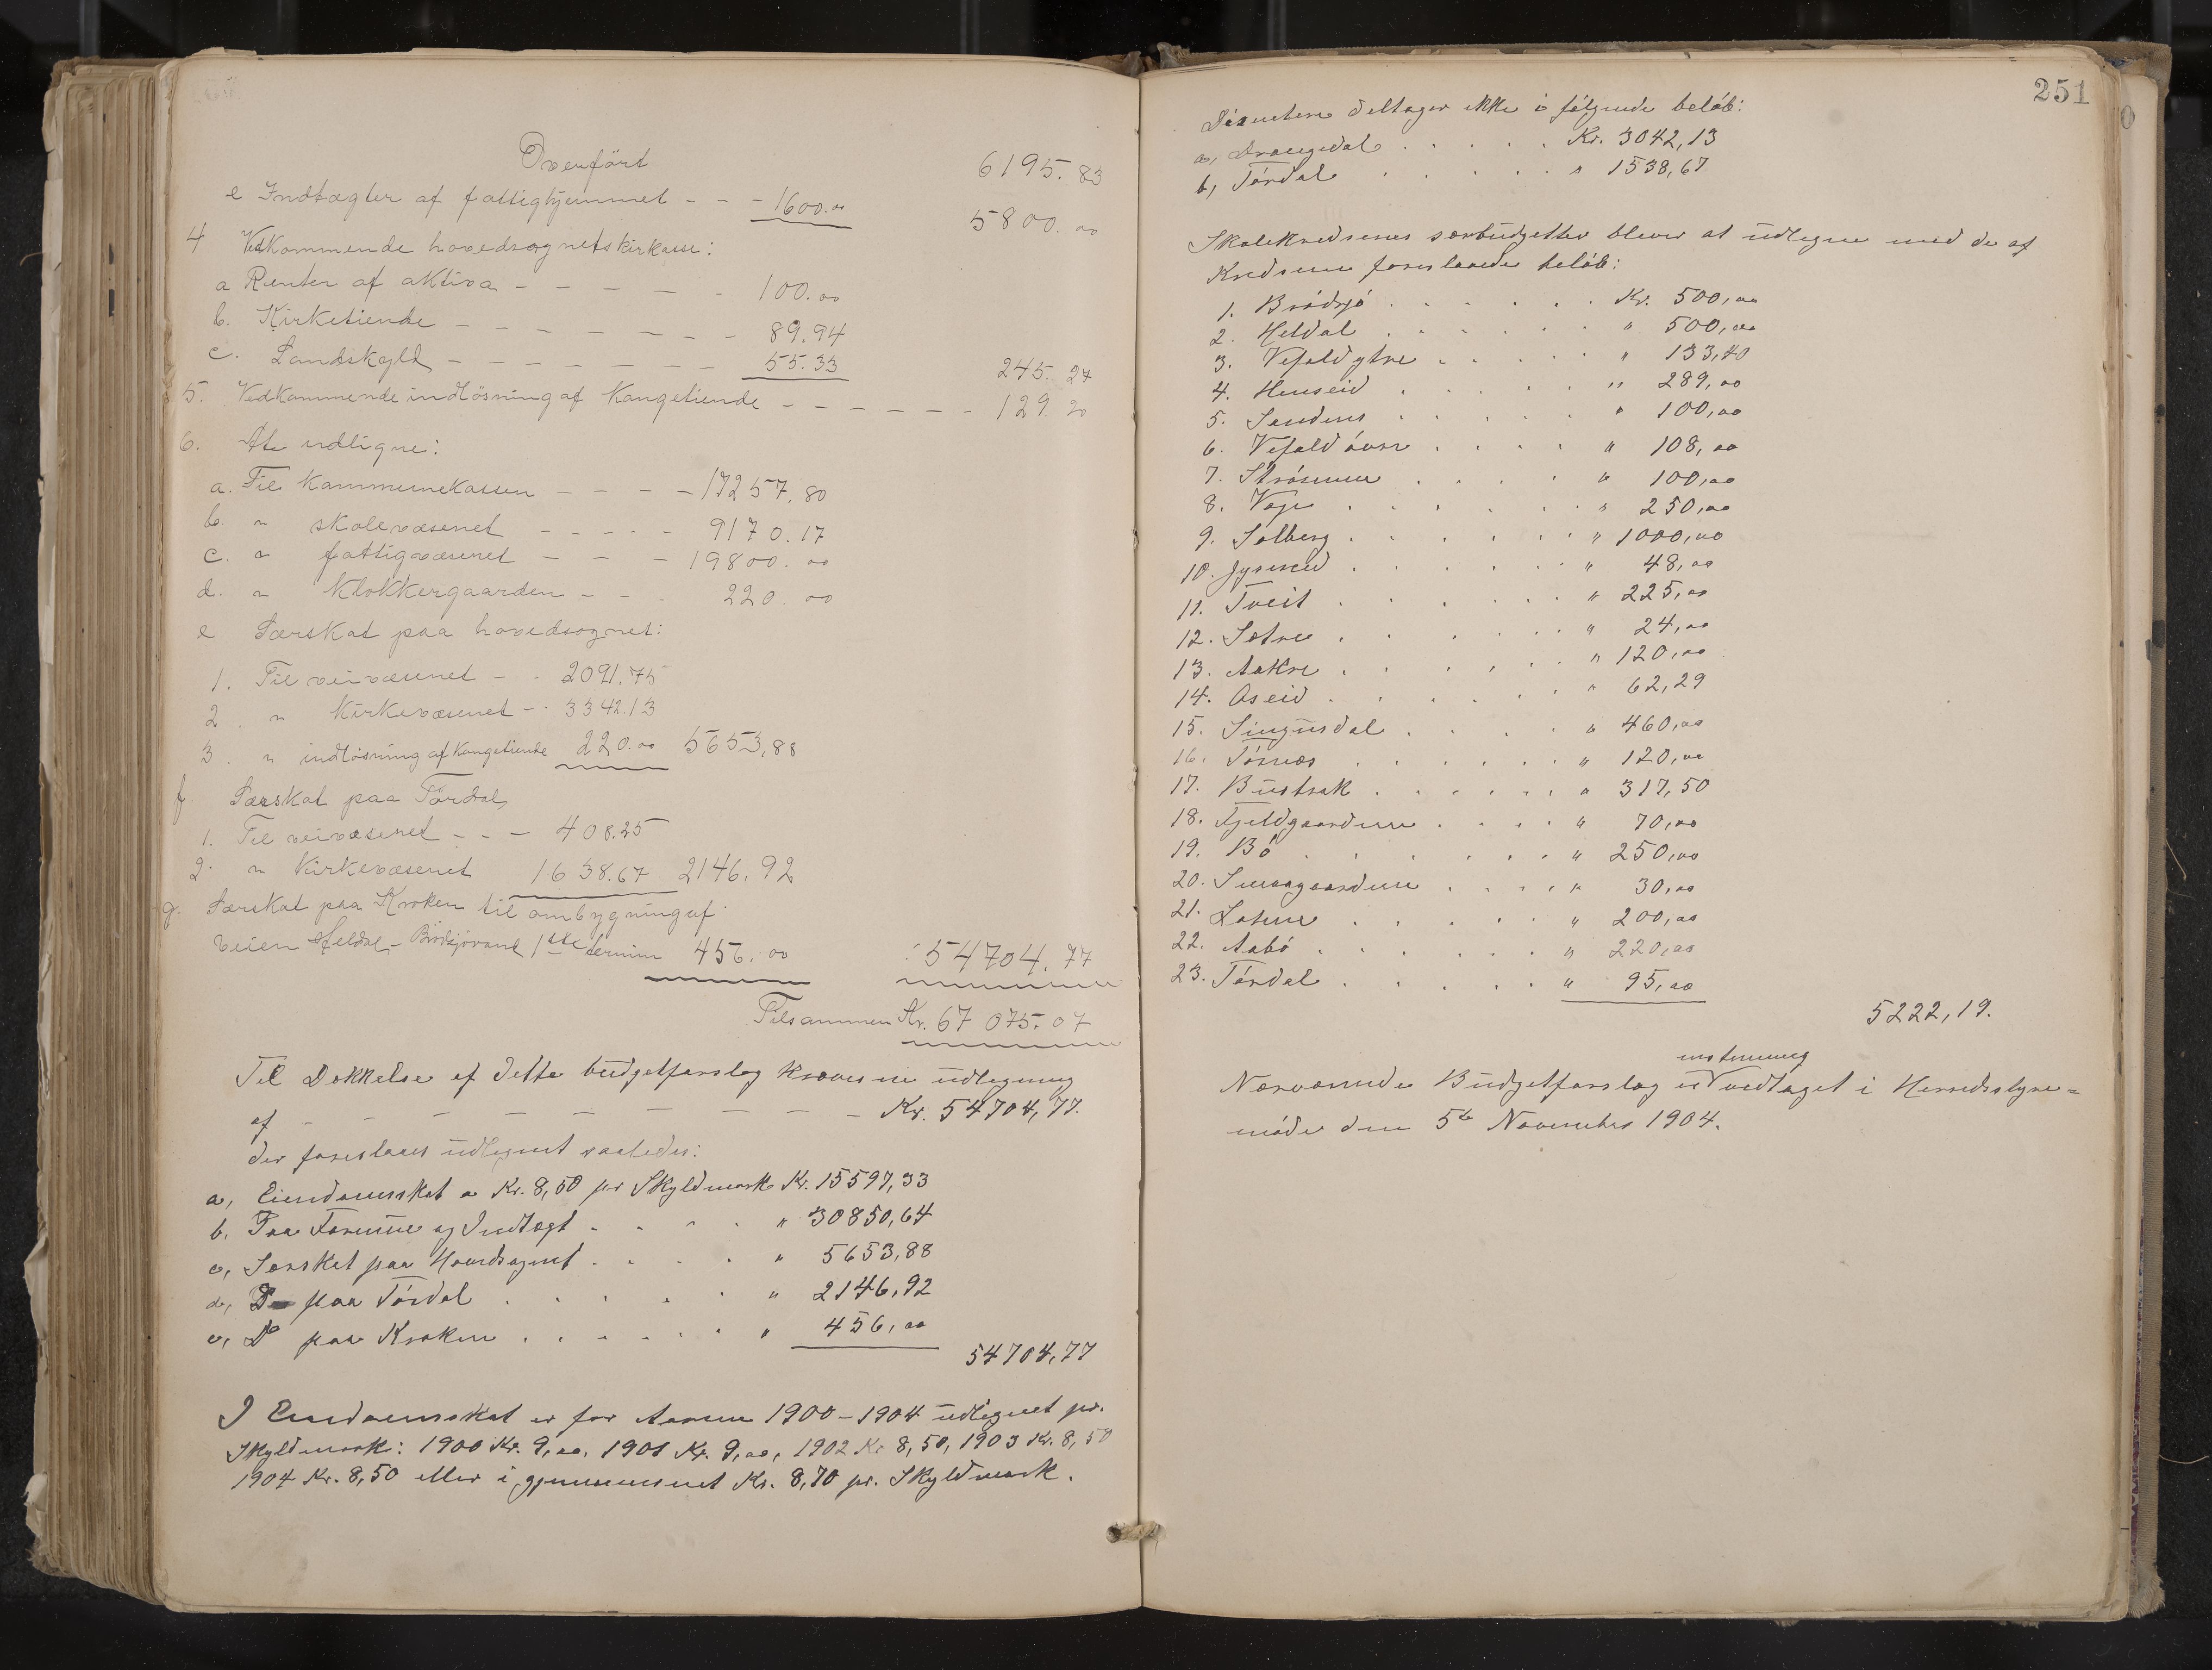 Overført 6195.83
e Indtægter af fattighjemmet - - - 1600.00 5800.00
4 Vedkommende hovedsognets kirkasse:
a Renter af aktiva - - - - - 100.00
b. Kirketiende - - - - - - - 89.94
c. Landskyld - - - - - - - 55.33 245.27
5. Vedkommende indløsning af Kongetiende - - - - - - 129.20
6. At udligne:
a. Til Kommunekassen - - - - 17257.80
b. " skolevæsenet - - - - - 9170.17
c. " fattigvæsenet - - - 19800.00
d. " Klokkergaarden - - - 220.00
e Særskat paa hovedsognet:
1. Til veivæsenet - - 2091.75
2. " Kirkevæsenet - - 3342.13
3. " indløsning af Kongetiende 220.00 5653,88
f. Særskat paa Tørdal
1. Til veivæsenet - - - 408.25
2. " Kirkevæsenet 1638.67 2146.92
g. Særskat paa Kroken til ombygning af
veien Heldal - Brødsjøvand 1ste termin 456.00 54704.77
Tilsammen Kr. 67 075.07
Til Dækkelse af dette budgetforslag kræves en udligning
af - - - - - - - - - Kr. 54704,77.
der foreslaaes udlignet saaledes:
a, Eiendomsskat a Kr. 8,50 pr Skyldmark Kr. 15597,33
b, Paa Formue og Indtægt . . . . " 30850,64
c, Særskat paa Hovedsognet . . . . " 5653,88
d, Do paa Tørdal . . . . . " 2146,92
e, Do paa Kroken . . . . . . " 456,00
54704,77
I Eiendomsskat er for Aarene 1900-1904 udlignet pr.
Skyldmark: 1900 Kr. 9,00, 1901 Kr. 9,00, 1902 Kr 8,50, 1903 Kr. 8,50
1904 Kr. 8,50 eller i gjennemsnet Kr. 8,70 pr. Skyldmark.
251
Disentere deltager ikke i følgende beløb:
a, Drangedal . . . . . Kr. 3042,13
b, Tørdal . . . . . " 1538,67
Skolekredsenes særbudgetter bliver at udligne med de af
Kredsene foreslaaede beløb:
1. Brødsjø . . . . . . Kr. 500,00
2. Heldal . . . . . . " 500,00
3. Vefald ytre . . . . . " 133,40
4. Henseid . . . . . " 289,00
5. Sandens . . . . . " 100,00
6. Vefald øvre . . . . " 108,00
7. Strømme . . . . " 100,00
8. Voje . . . . . . " 250,00
9. Solberg . . . . . . " 1000,00
10. Gjerseid . . . . . . " 48,00
11. Tveit . . . . . . " 225,00
12. Sætre . . . . . . " 24,00
13. Aakre . . . . . . " 120,00
14. Oseid . . . . . . " 62,29
15. Singusdal . . . . . " 460,00
16. Tørnes . . . . . . " 120,00
17. Bustrak . . . . . . " 317,50
18. Fjeldgaardene . . . . " 70,00
19. Bø . . . . . . " 250,00
20. Smaagaardene . . . . " 30,00
21. . . . . . " 200,00
22. Aabø . . . . . . " 220,00
23. Tørdal . . . . . " 95,00
5222,19.
enstemmig
Nærværende Budgetforslag er vedtaget i Herredsstyre=
møde den 5te November 1904.